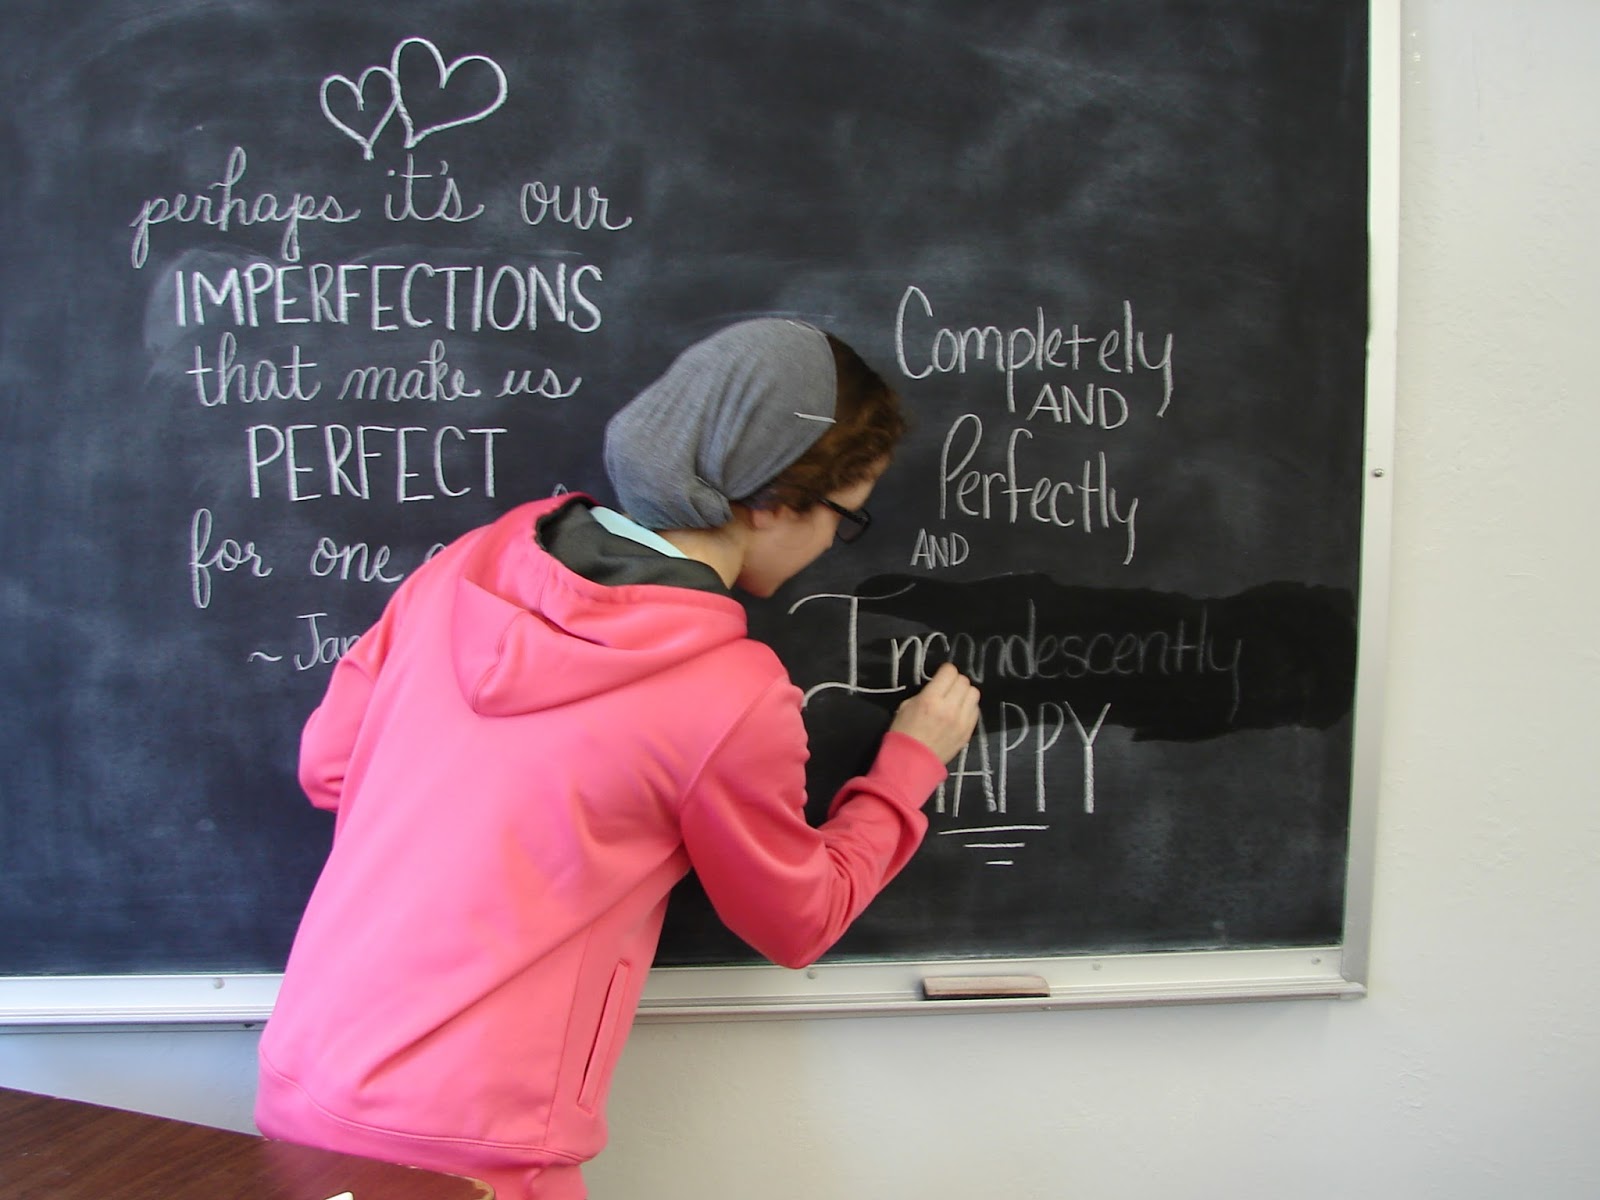 perhaps it's our
IMPERFECTIONS
that make us
PERFECT
for one
~Jan
Completely
AND
Perfectly
AND
Incandescently
HAPPY